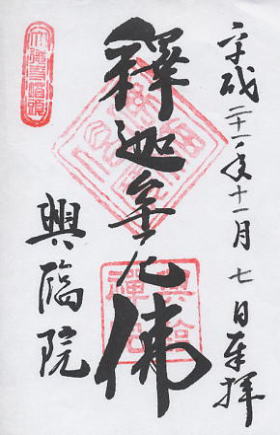 平成二十一年十一月七日奉拝
釋迦牟尼佛
興臨院